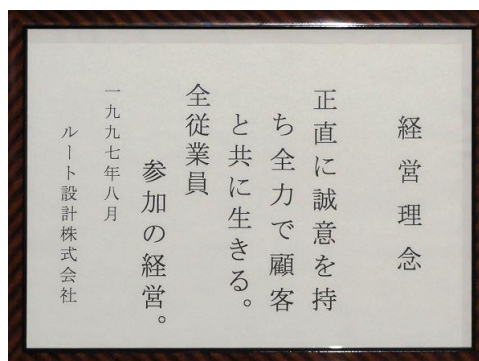 経営理念
正直に誠意を持
ち全力で顧客
と共に生きる。
全従業員
参加の経営。
一九九七年八月
ルート設計株式会社